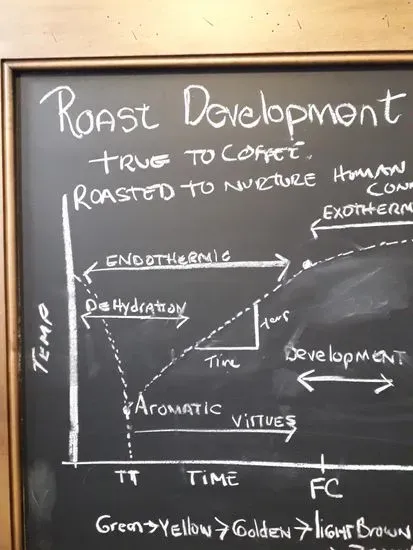 Roast Development
TRUE TO COFFEE.
ROASTED TO NURTURE HUMAN
CON
EXOTHERM
ENDOTHERMIC
DEHYDRATION
TEMP
Time
Development
AROMATIC
VIRTUES
TT
TIME
FC
Green→Yellow→Golden→light Brown